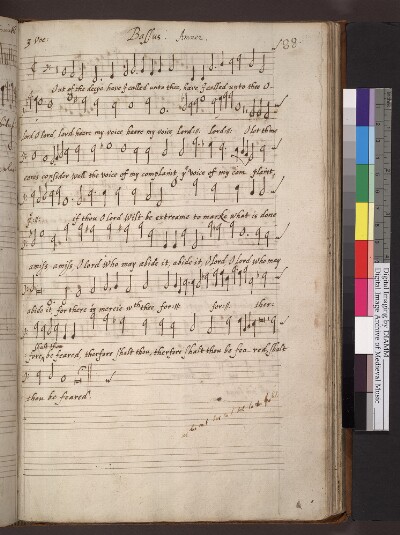 3 Voc. Bassus. Amner. 88
Out of the deepe have I called unto thee, have I called unto thee O
lord O lord, lord heare my voice heare my voice lord :||: lord :||: O let thine
eares consider well the voice of my complaint, ye voice of my com plaint,
if thou O lord wilt be extreame to marke what is done
amisse amisse O lord who may abide it, abide it, O lord O lord who may
abide it, for there is mercie wth thee for :||: for :||: ther-
shalt thou
fore be feared, therfore shalt thou, therfore shalt thou be fea red, shalt
thou be feared.
Digital Imaging by DIAMM
Digital Image Archive of Medieval Music